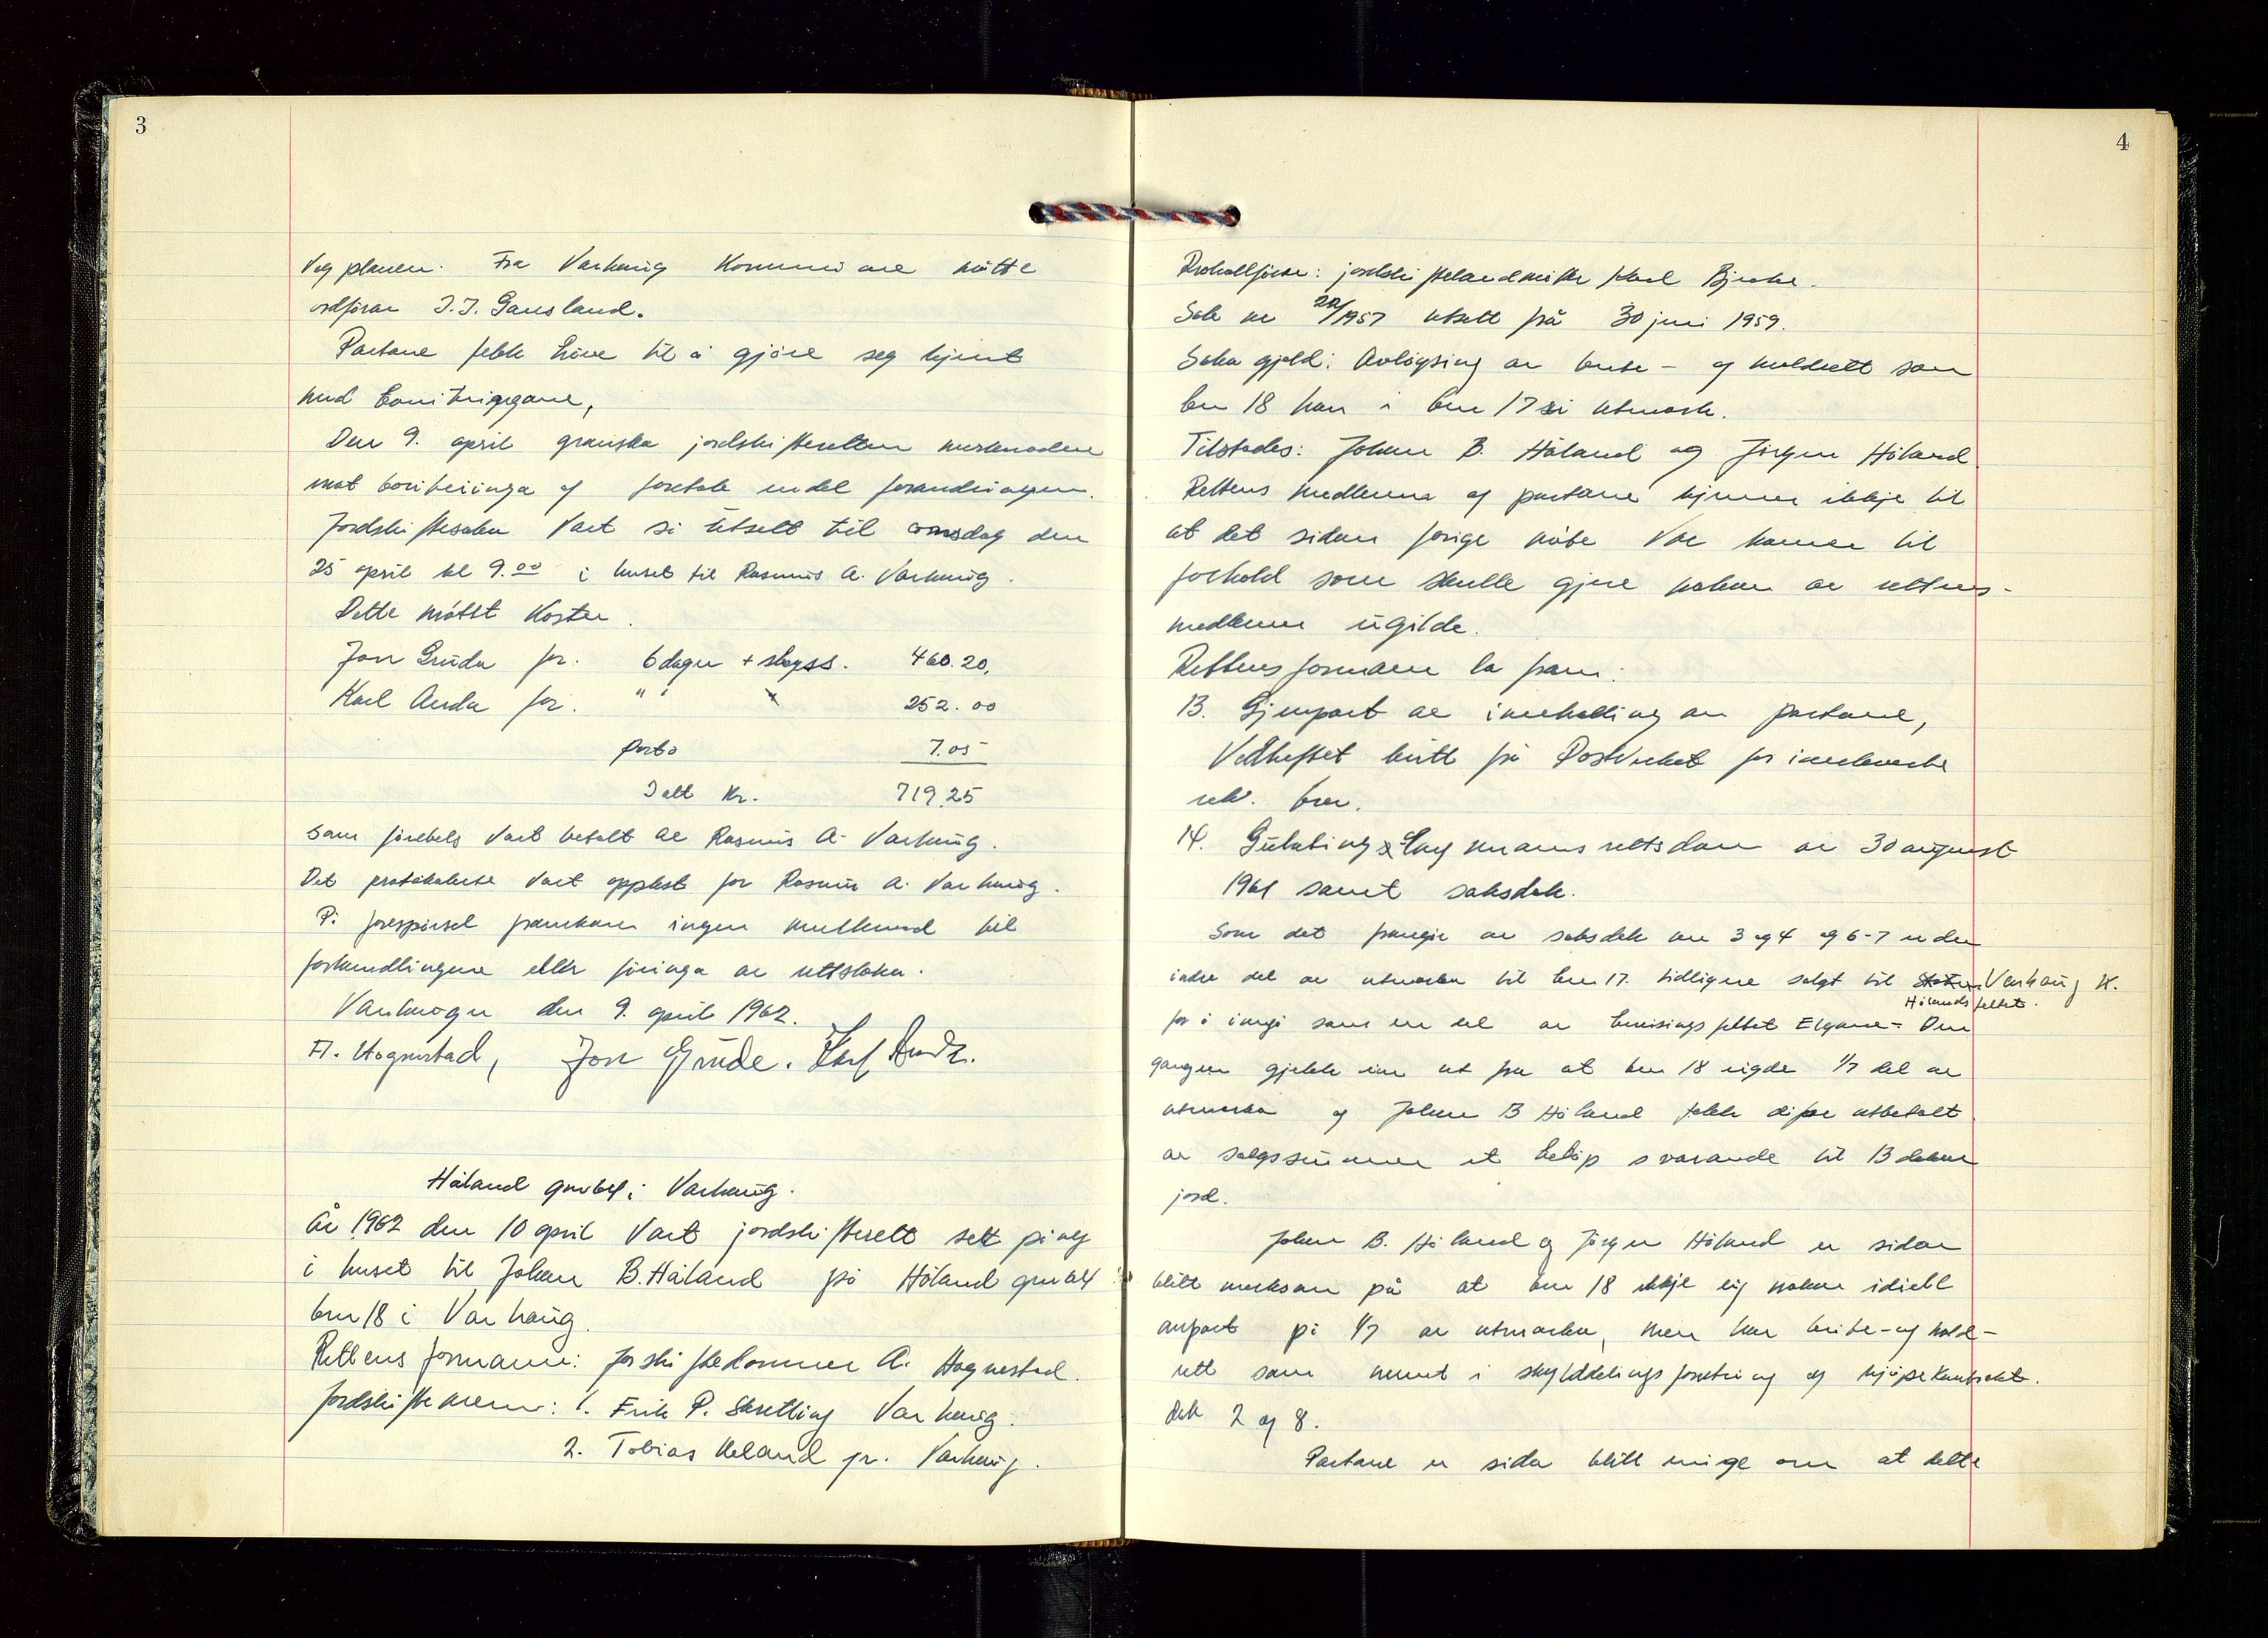 3
Vegplanen. Fra Varhaug Kommune møtte
ordførar I.I. Gausland.
Partane fekk høve til å gjøre seg kjent
med boniteringane,
Den 9. april granska jordskifteretten merknadene
mot boniteringa og foretok endel forandringer.
Jordskiftesaka vart så utsett til onsdag den
25 april kl 9.00 i huset til Rasmus A. Varhaug.
Dette møtet koster.
Jon Grude for. 6 dager + skyss. 460.20.
Karl Anda for. " " 252.00
porto 7.05
I alt kr. 719.25
som førebels vart betalt av Rasmus A. Varhaug.
Det protokolerte vart opplest for Rasmus A. Varhaug.
På forespørsel framkom ingen merknad til
forhandlingene eller føringa av rettsboka.
Varhaug den 9. april 1962.
A. Hognestad, Jon Grude. Karl Anda.
Håland gnr 61 i Varhaug.
År 1962 den 10 april vart jordskifterett sett på ny
i huset til Johan B. Håland på Håland gnr 61
bnr 18 i Varhaug.
Rettens formann: Jorskiftedommer A. Hognestad.
Jordskiftemenn: 1. Erik P. Skretting Varhaug.
2. Tobias Ueland pr. Varhaug.
4
Protokollførar: jordskiftelandmåler Karl Bjerke.
Sak nr 20/1957 utsett frå 30 juni 1959.
Saka gjeld: Avløysing av beite- og moldrett som
bnr 18 har i bnr 17 si utmark.
Tilstades: Johan B. Håland og Jørgen Håland.
Rettens medlemmer og partane kjenner ikkje til
at det sidan forige møte var komen til
forhold som skulle gjere nokon av rettens-
medlemmer ugilde.
Rettens formann la fram:
13. Gjenpart av innkalling av partane,
Vedheftet kvitt frå Postverket for innleverte
rek. brev.
14. Gulating Lagmannsrettsdom av 30 august
1961 samt saksdok.
Som det framgår av saksdok nr 3 og 4 og 6-7 er den
indre del av utmarka til bnr 17. tidligere solgt til Staten Varhaug K.
for å inngå som en del av bureisingsfeltet Elgane= Hålandsfeltet. Den
gangen gjekk ein ut fra at bnr 18 eigde 1/7 del av
utmarka og Johan B Håland fekk difor utbetalt
av salgssummen et beløp svarande til 13 dekar
jord.
Johan B. Håland og Jørgen Håland er sidan
blitt merksam på at bnr 18 ikkje eig nokon ideell
anpart på 1/7 av utmarka, men har beite- og mold-
rett som nemnt i skylddelingsforretning og kjøpekontrakt.
dok 2 og 8.
Partane er sidan blitt einige om at dette